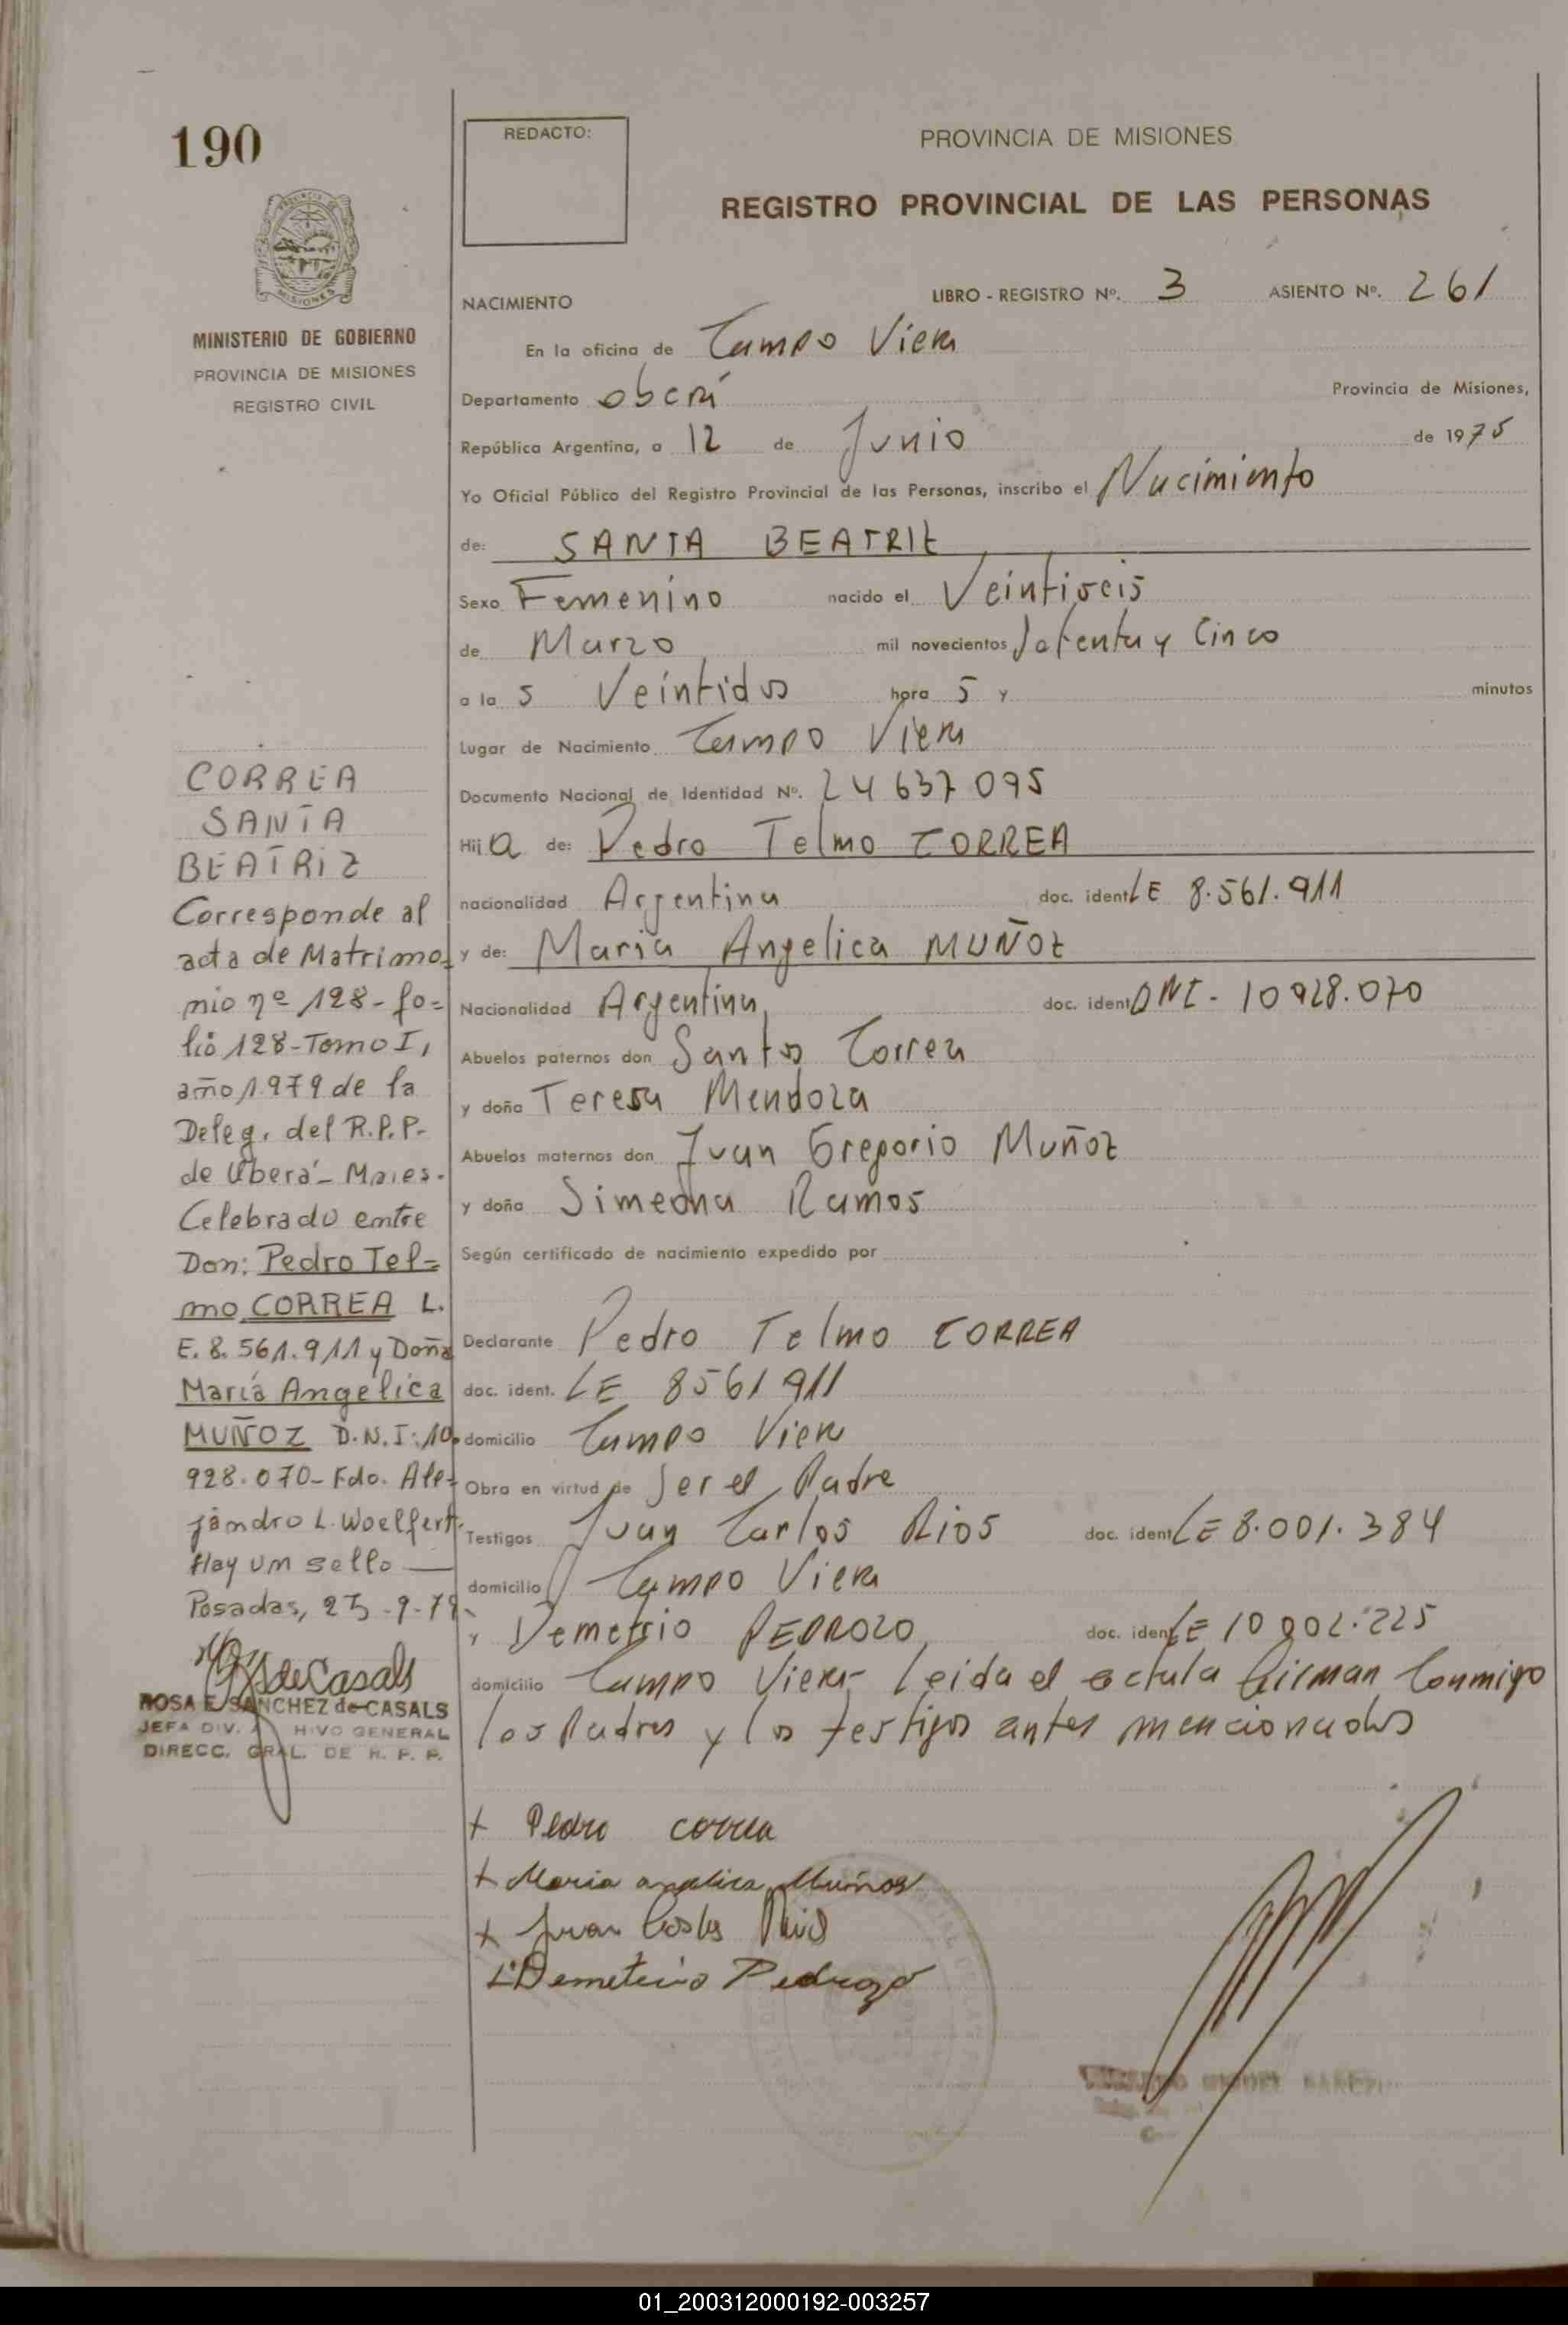 190
REDACTO:
PROVINCIA DE MISIONES
REGISTRO PROVINCIAL DE LAS PERSONAS
MISIONES
MINISTERIO DE GOBIERNO
PROVINCIA DE MISIONES
REGISTRO CIVIL
NACIMIENTO
LIBRO - REGISTRO Nº. 3 ASIENTO Nº. 261
En la oficina de Campo Viera
Departamento oberá Provincia de Misiones,
República Argentina, a 12 de Junio de 1975
Yo Oficial Público del Registro Provincial de las Personas, inscribo el Nacimiento
de: SANTA BEATRIZ
Sexo Femenino nacido el Veintiseis
de Marzo mil novecientos Setenta y Cinco
a la s Veintidos hora s y minutos
Lugar de Nacimiento Campo Viera
Documento Nacional de Identidad Nº. 24 637 095
Hij a de: Pedro Telmo CORREA
nacionalidad Argentina doc. ident LE 8.561.911
y de: Maria Angelica MUÑOZ
Nacionalidad Argentina doc. ident DNI - 10928.070
Abuelos paternos don Santos Correa
y doña Teresa Mendoza
Abuelos maternos don Juan Gregorio Muñoz
y doña Simeona Ramos
Según certificado de nacimiento expedido por
Declarante Pedro Telmo CORREA
doc. ident. LE 8561911
domicilio Campo Viera
Obra en virtud de Ser el Padre
Testigos Juan Carlos Rios doc. ident LE 8.001.384
domicilio Campo Viera
y Demetrio PEDROZO doc. ident LE 10 002.225
domicilio Campo Viera- Leida el acta la firman Conmigo
los Padres y los testigos antes mencionados
+ Pedro correa
+ Maria angelica Muños
+ Juan Carlos Rios
Demetrio Pedrozo
CORREA
SANTA
BEATRIZ
Corresponde al
acta de Matrimo=
nio nº 128 - fo=
lio 128 - Tomo I,
año 1979 de la
Deleg. del R.P.P.
de Oberá - Mnes.
Celebrado entre
Don: Pedro Tel=
mo CORREA L.
E. 8.561.911 y Doña
María Angélica
MUÑOZ D.N.I: 10.
928.070 - Fdo. Ale=
jandro L. Woelfert.
Hay un sello —
Posadas, 25-9-79
ROSA E. SANCHEZ de CASALS
JEFA DIV. ARCHIVO GENERAL
DIRECC. GRAL. DE R. P. P.
01_200312000192-003257